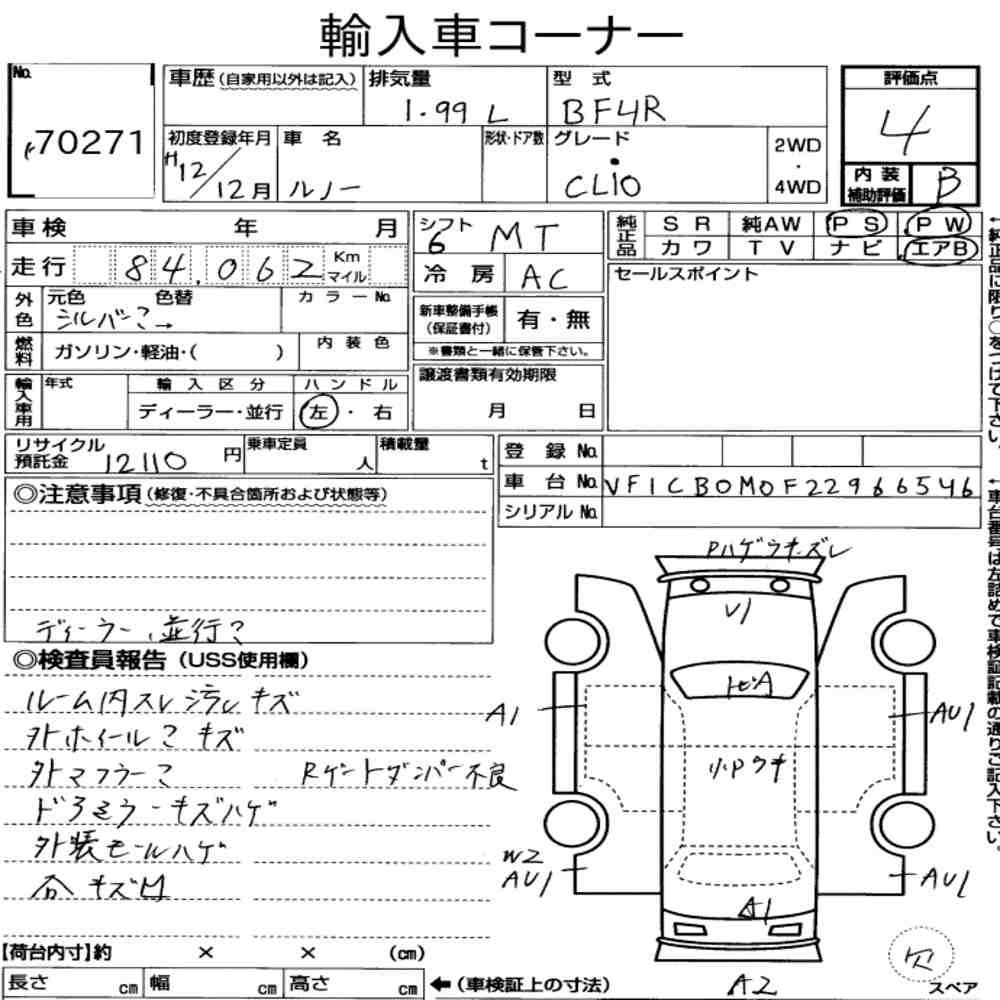 輸入車コーナー
No. 70271
車歴 (自家用以外は記入)
排気量 1.99 L
型式 BF4R
評価点 4
初度登録年月 H12/12月
車名 ルノー
形状・ドア数
グレード CLIO
2WD・4WD
内装補助評価 B
車検 年 月
シフト 6 MT
純正品 SR 純AW PS PW
カワ TV ナビ エアB
走行 84,062 Km マイル
冷房 AC
セールスポイント
外色 元色 色替 カラーNo.
シルバー2→
新車整備手帳(保証書付) 有・無
※書類と一緒に保管下さい。
燃料 ガソリン・軽油・( )
内装色
譲渡書類有効期限
月 日
輸入車用 年式 輸入区分 ハンドル
ディーラー・並行 左・右
リサイクル預託金 12110 円
乗車定員 人
積載量 t
登録No.
車台No. VF1CB0M0F22966546
シリアルNo.
◎注意事項 (修復・不具合箇所および状態等)
ディーラー,並行?
◎検査員報告 (USS使用欄)
ルーム内スレ汚レキズ
外ホイール?キズ
外マフラー? Rゲートダンパー不良
ドアミラーキズハゲ
外装モールハゲ
PハゲラキズレV1
トビA
A1
AU1
小Pウキ
W2
AU1
AU1
A1
A2
欠
スペア
【荷台内寸】約 × × (cm)
長さ cm 幅 cm 高さ cm ←(車検証上の寸法)
←純正品に限り○をつけて下さい。
←車台番号は左詰めで車検証記載の通りご記入下さい。